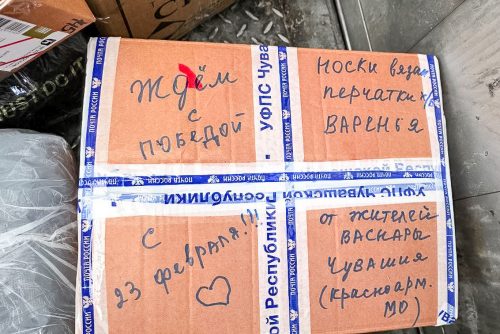 Ждём
с
победой
носки вяза
перчатки х/б
варенья
с
23 февраля!!!
от жителей
Васнары
Чувашия
(Красноарм.
МО)
ПОЧТА РОССИИ
УФПС Чува
УФПС Чувашской
Республики
ой Республики